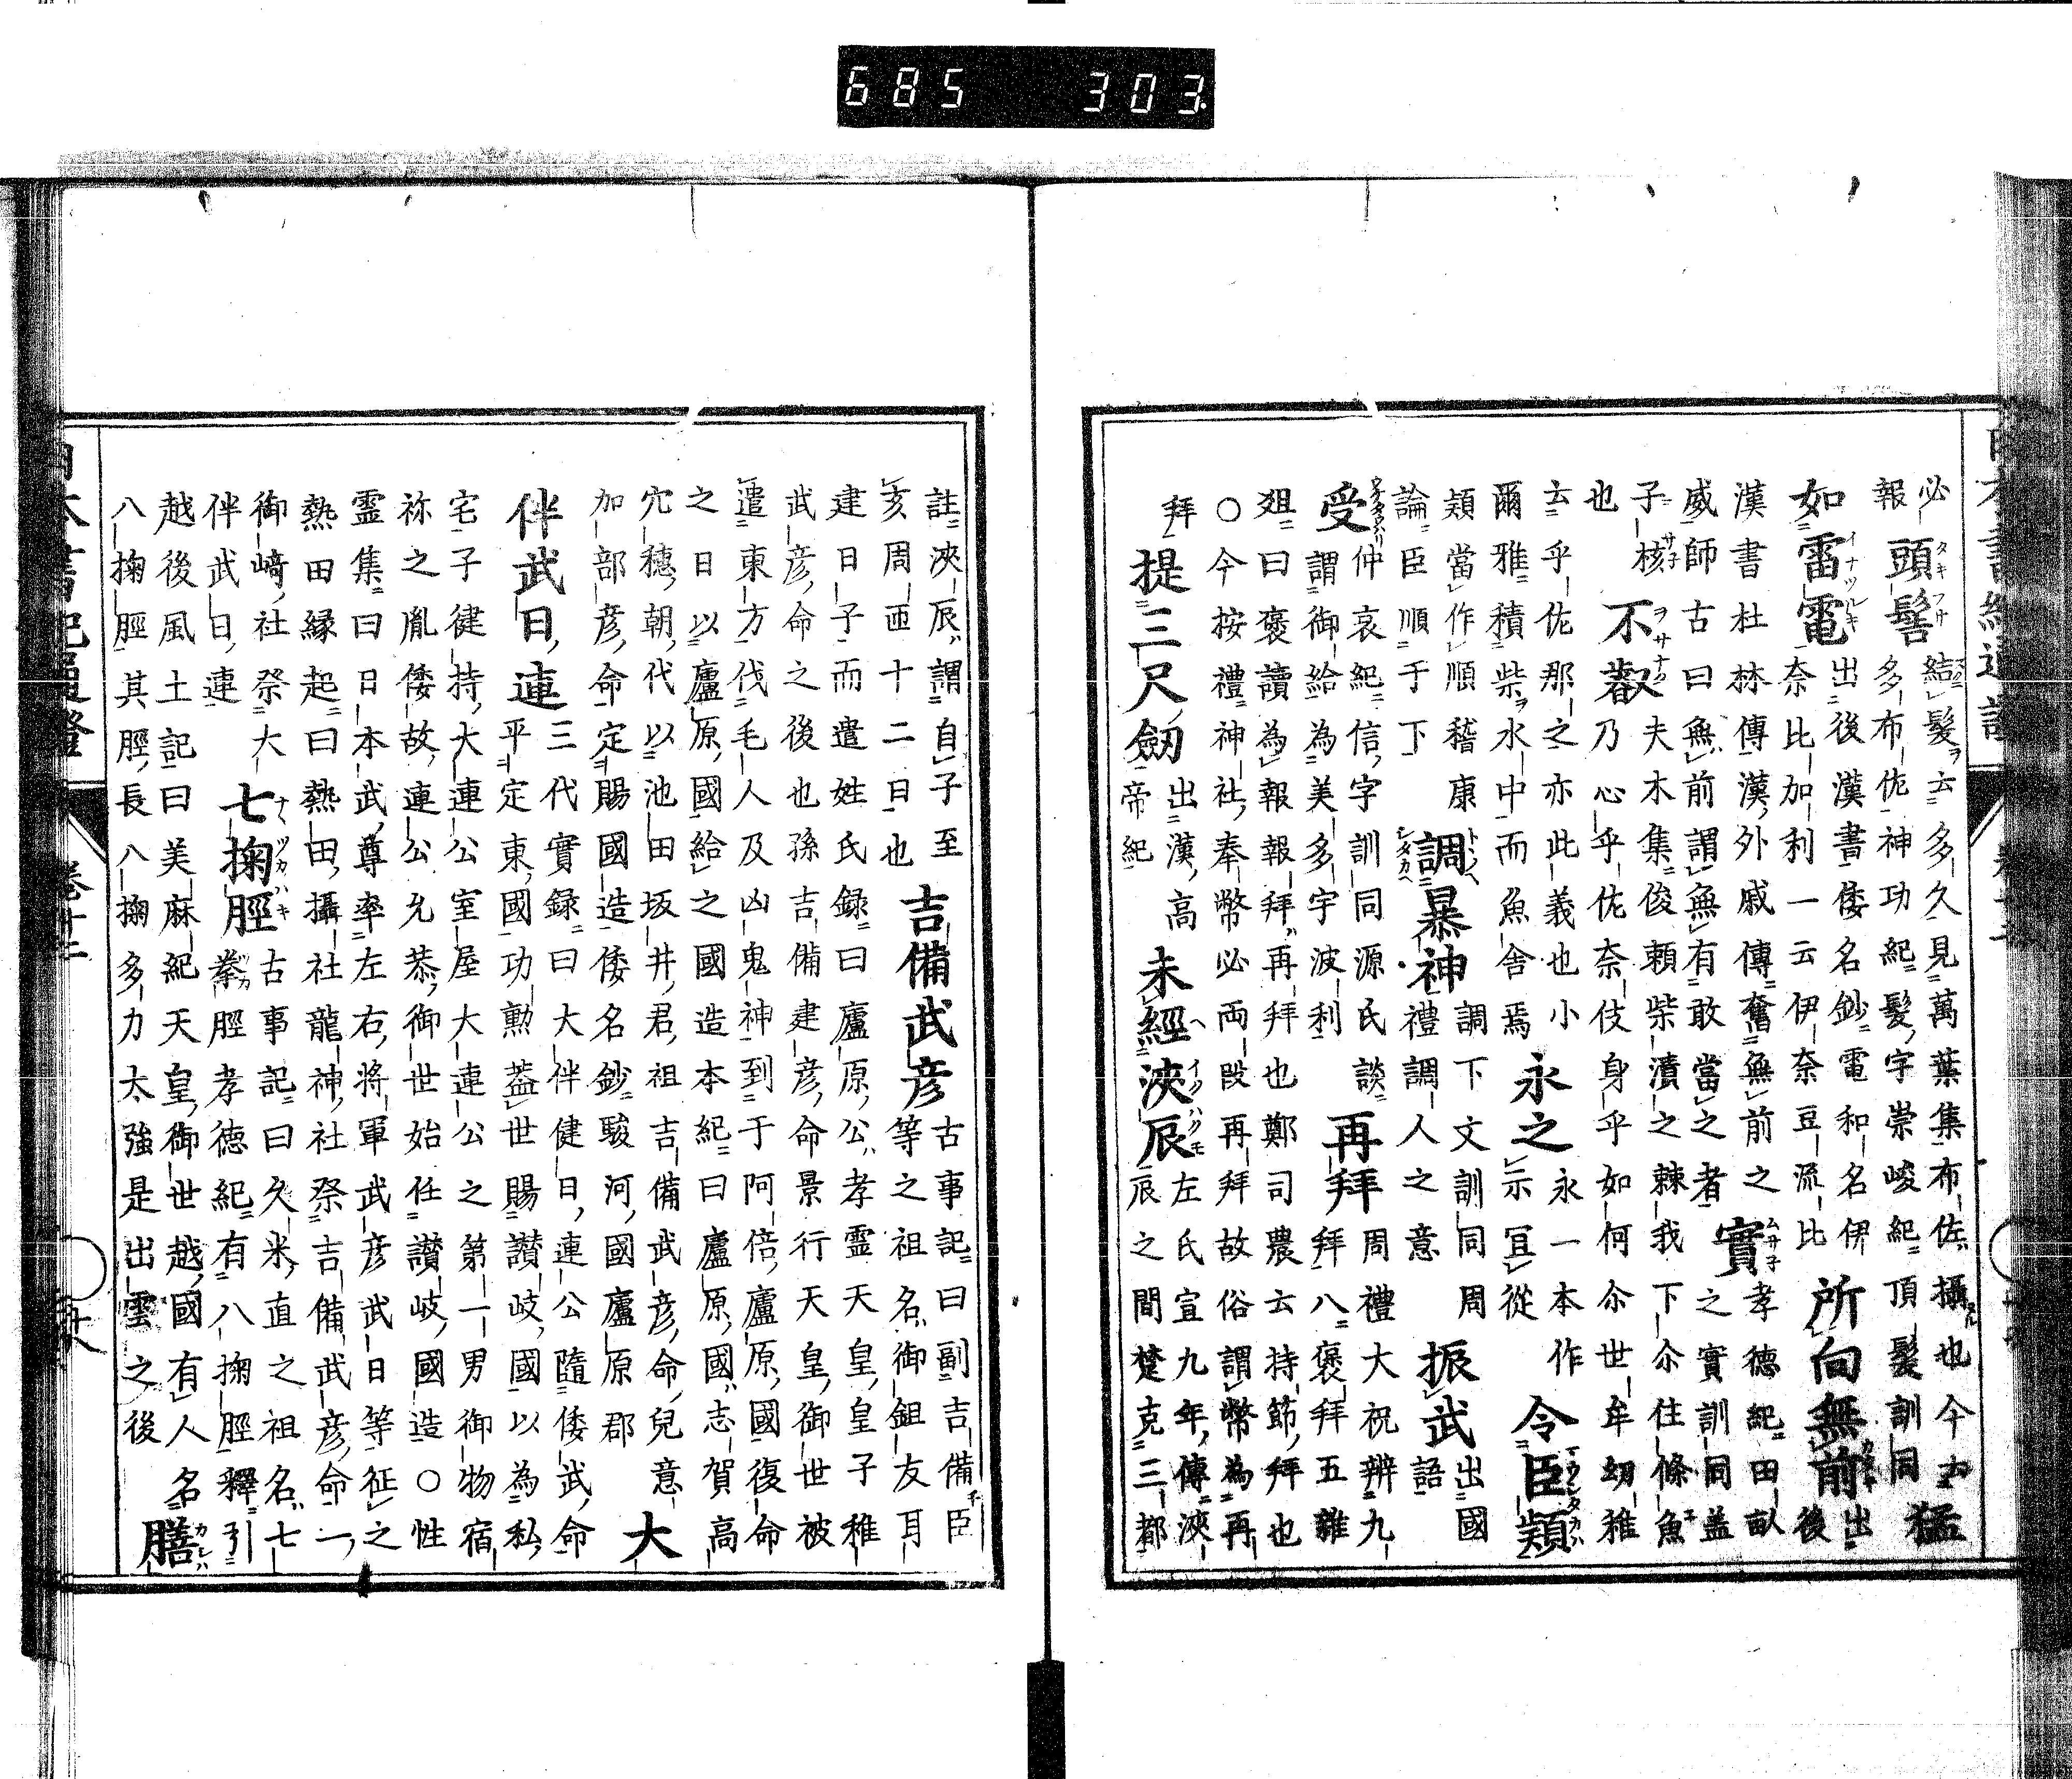 必
報
頭髻
結髮云多久見萬葉集布佐攝也今云
多布佐神功紀髮字崇峻紀頂髮訓同
猛
如雷電
出後漢書倭名鈔電和名伊
奈比加利一云伊奈豆流比
所向無前
出
後
漢書杜林傳漢外戚傳奮無前之
威師古曰無前謂無有敢當之者
實
孝德紀田畝
之實訓同盖
子核
也
不叡
夫木集俊賴柴漬之棘我下尒住條魚
乃心乎佐奈伎身乎如何尒世牟幼稚
云乎佐那之亦此義也小
爾雅積柴水中而魚舎焉
永之
永一本作
示冝從
令臣顈
顈當作順稽康
論臣順于下
調暴神
調下文訓同周
禮調人之意
振武
出國
語
受
仲哀紀信字訓同源氏談
謂御給為美多宇波利
再拜
周禮大祝辨九
拜八褒拜五雜
爼曰褒讀為報報拜再拜也鄭司農云持節拜也
○今按禮神社奉幣必両段再拜故俗謂幣為再
拜
提三尺劒
出漢高
帝紀
未經浹辰
左氏宣九年傳浹
辰之間楚克三都
註浹辰謂自子至
亥周匝十二日也
吉備武彦
古事記曰副吉備臣
等之祖名御鉏友耳
建日子而遣姓氏録曰廬原公孝霊天皇皇子稚
武彦命之後也孫吉備建彦命景行天皇御世被
遣東方伐毛人及凶鬼神到于阿倍廬原國復命
之日以廬原國給之國造本紀曰廬原國志賀高
穴穂朝代以池田坂井君祖吉備武彦命兒意
加部彦命定賜國造倭名鈔駿河國廬原郡
大
伴武日連
三代實録曰大伴健日連公隨倭武命
平定東國功勲盖世賜讃岐國以為私
宅子健持大連公室屋大連公之第一男御物宿
祢之胤倭故連公允恭御世始任讃岐國造○性
霊集曰日本武尊率左右将軍武彦武日等征之
熱田縁起曰熱田攝社龍神社祭吉備武彦命一
御﨑社祭大
伴武日連
七掬脛
古事記曰久米直之祖名七
拳脛孝徳紀有八掬脛釋引
越後風土記曰美麻紀天皇御世越國有人名
八掬脛其脛長八掬多力太強是出雲之後
膳
685 303